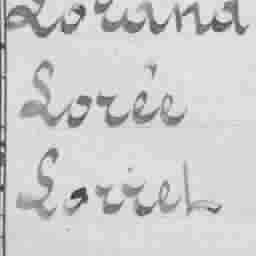 Lorand
Lorée
Lorret